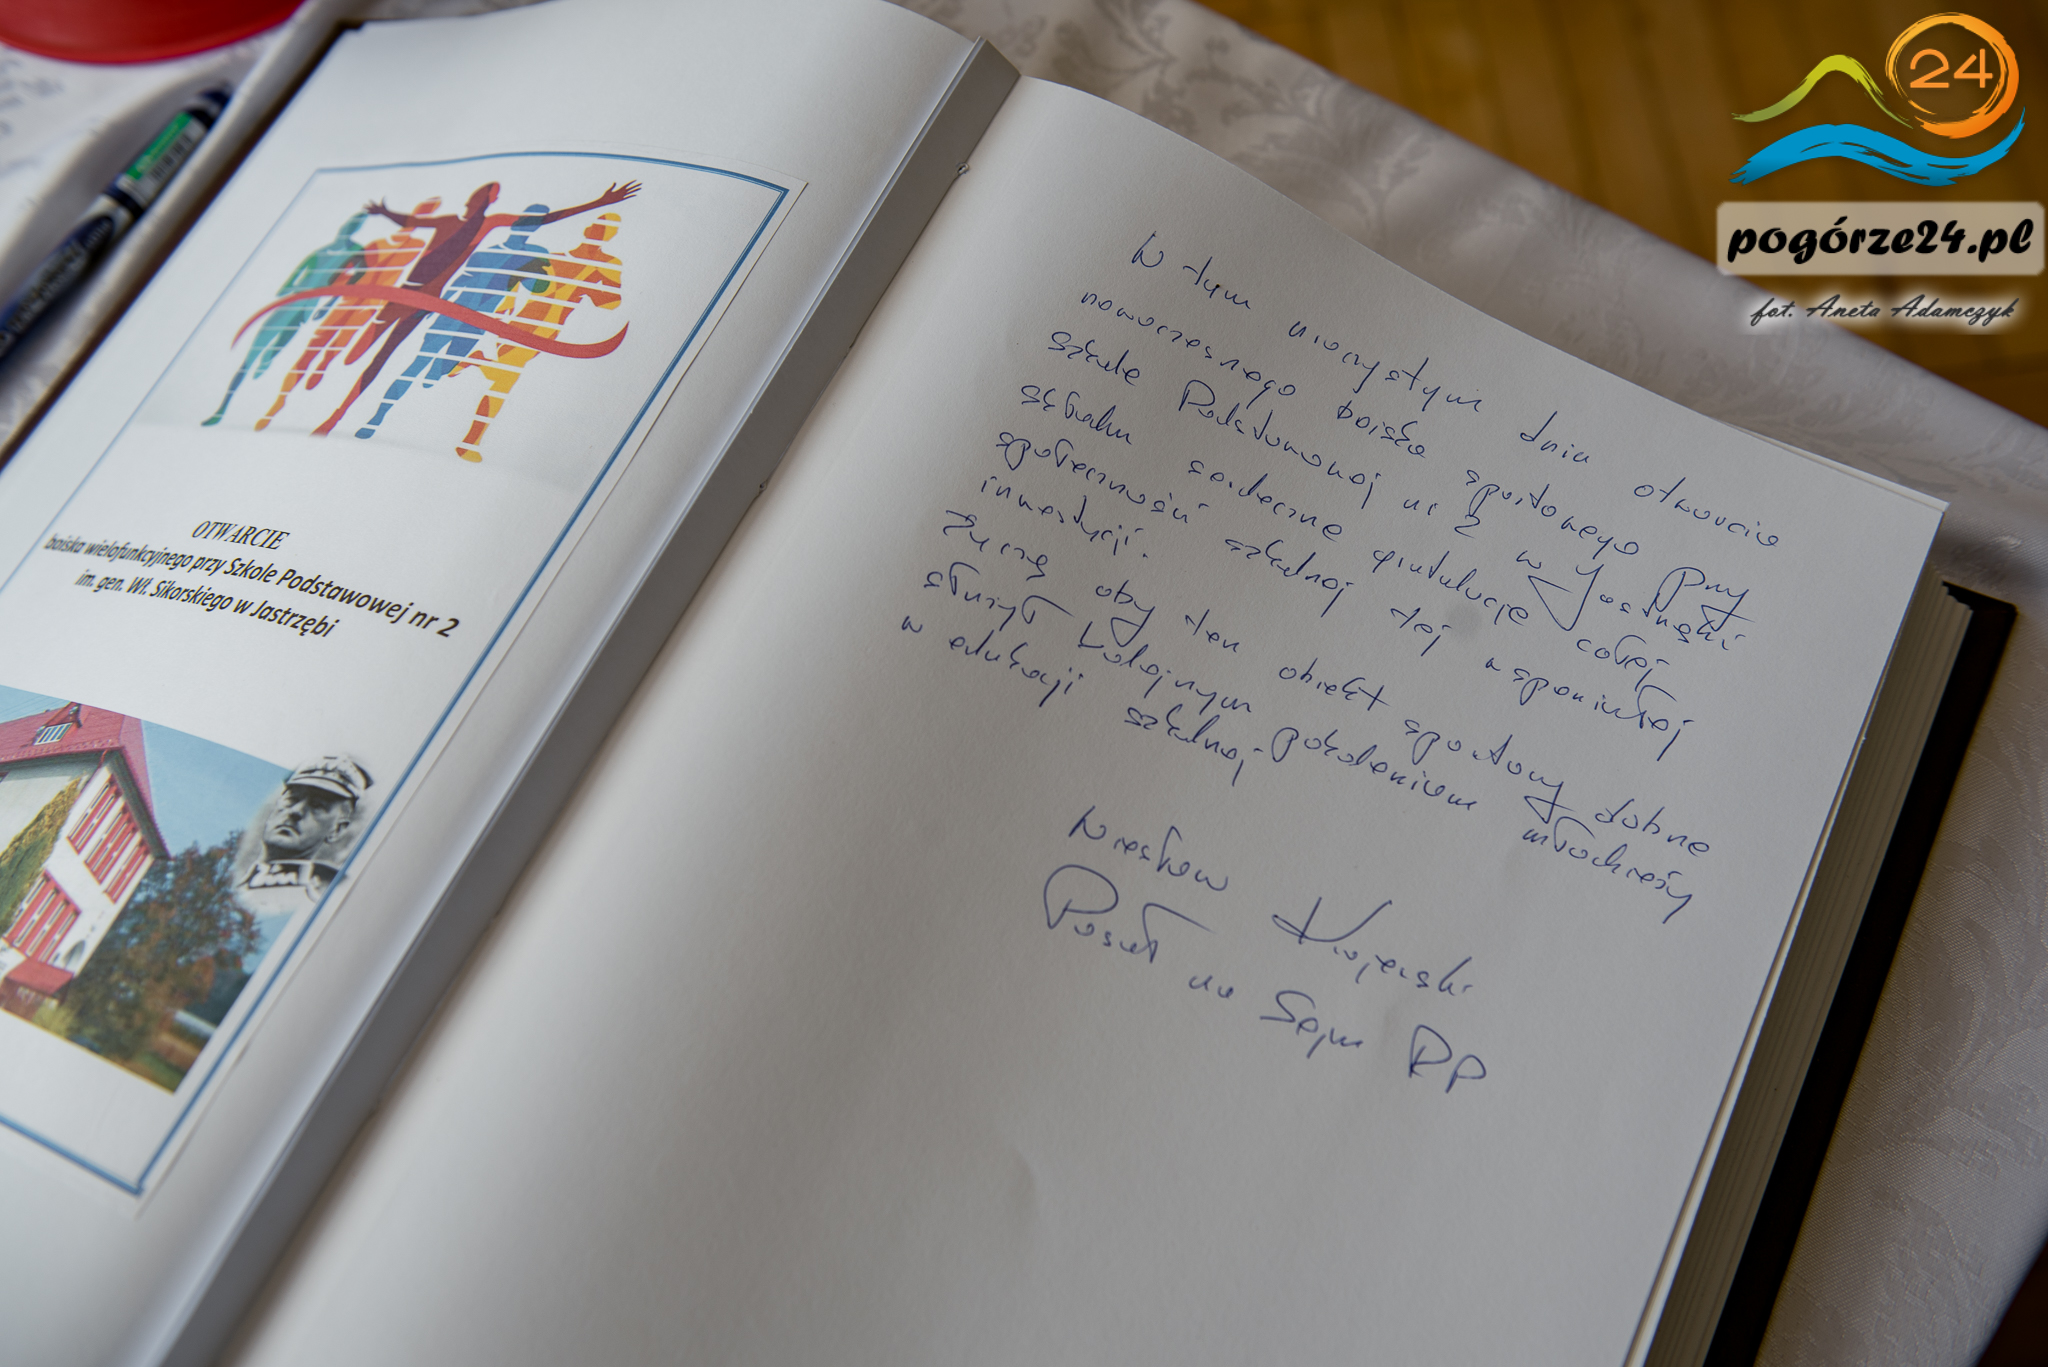 OTWARCIE
boiska wielofunkcyjnego przy Szkole Podstawowej nr 2
im. gen. Wł. Sikorskiego w Jastrzębi
W tym uroczystym dniu otwarcia
nowoczesnego boiska sportowego przy
szkole Podstawowej nr 2 w Jastrzębi
składam serdeczne gratulacje całej
społeczność szkolnej tej wspaniałej
inwestycji.
Życzę aby ten obiekt sportowy dobrze
służył kolejnym pokoleniom młodzieży
w edukacji szkolnej.
Wiesław Krajewski
Poseł na Sejm RP
24
pogórze24.pl
fot. Aneta Adamczyk